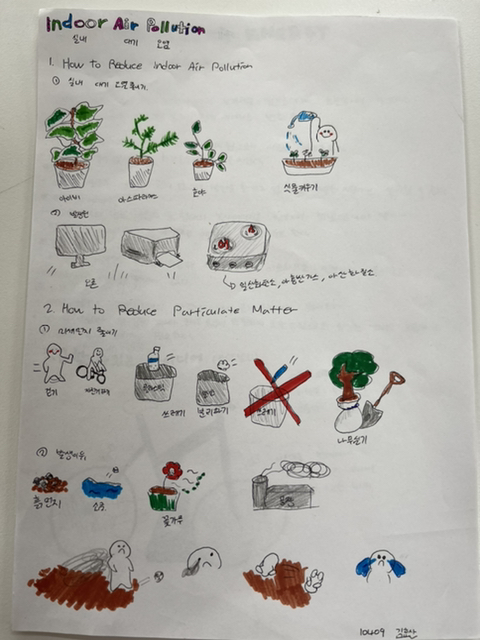 Indoor Air Pollution
실내 대기 오염
1. How to Reduce Indoor Air Pollution
① 실내 대기 오염 줄이기.
아이비 아스파라거스 식물 키우기
②
오존
일산화탄소, 아황산가스, 이산화질소
2. How to Reduce Particulate Matter
① 미세먼지 줄이기
걷기 자전거타기 쓰레기 분리하기 쓰레기 나무심기
② 발생이유
흙먼지 소금 꽃가루 공장
10409